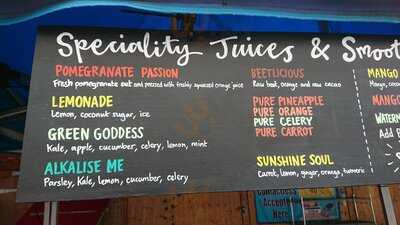 Speciality Juices & Smoot
POMEGRANATE PASSION
Fresh pomegranate cut and pressed with freshly squeezed orange juice
LEMONADE
Lemon, coconut sugar, ice
GREEN GODDESS
Kale, apple, cucumber, celery, lemon, mint
ALKALISE ME
Parsley, Kale, lemon, cucumber, celery
BEETLICIOUS
Raw beet, orange and raw cacao
PURE PINEAPPLE
PURE ORANGE
PURE CELERY
PURE CARROT
SUNSHINE SOUL
Carrot, lemon, ginger, orange, turmeric
MANGO
Mango, coconu
MANG
WATERM
Add
Contactless
Accepted
Here